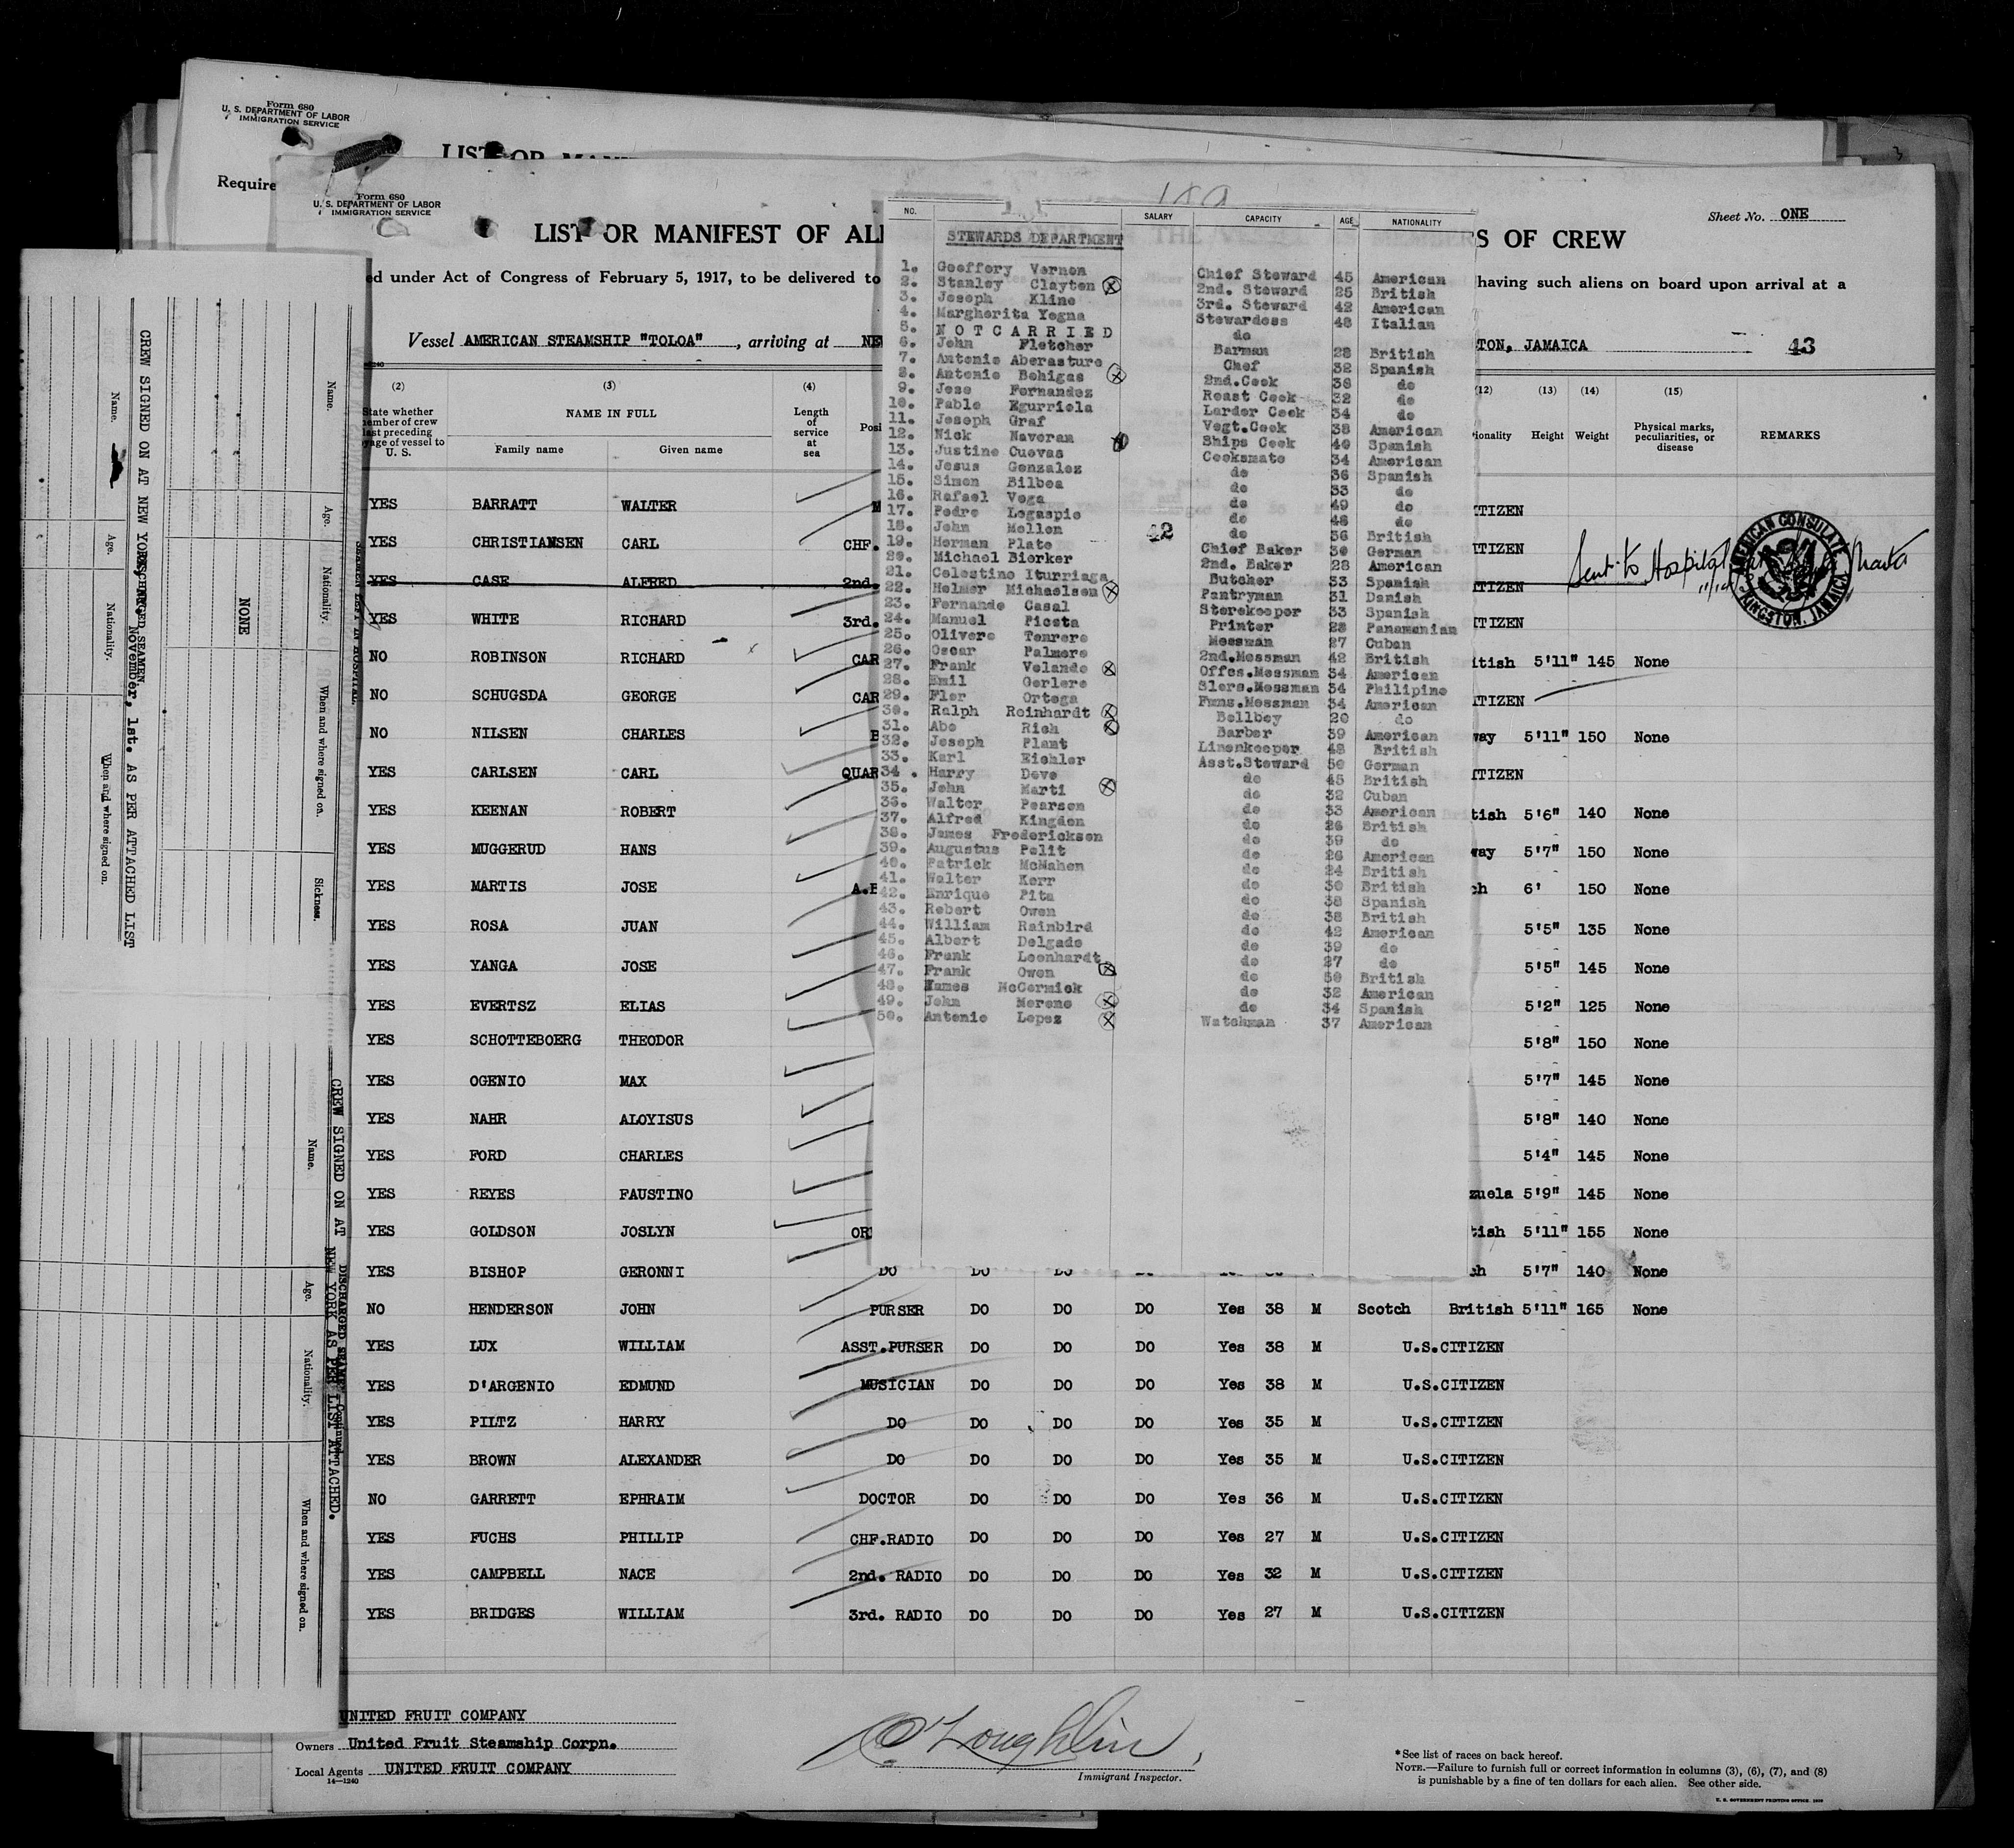 Form 680
U. S. DEPARTMENT OF LABOR
IMMIGRATION SERVICE
LIST OR
Require
Form 680
U. S. DEPARTMENT OF LABOR
IMMIGRATION SERVICE
Sheet No. ONE
LIST OR MANIFEST OF AL
S OF CREW
ed under Act of Congress of February 5, 1917, to be delivered to
having such aliens on board upon arrival at a
Vessel AMERICAN STEAMSHIP "TOLOA", arriving at NE
TON, JAMAICA 43
(2) (3) (4) (12) (13) (14) (15)
State whether member of crew last preceding voyage of vessel to U. S.
NAME IN FULL
Family name Given name
Length of service at sea
Posi
Height Weight
Physical marks, peculiarities, or disease
REMARKS
YES BARRATT WALTER TIZEN
YES CHRISTIANSEN CARL CHF. TIZEN
YES CASE ALFRED 2nd. TIZEN Sent to Hospital
AMERICAN CONSULATE
KINGSTON, JAMAICA
YES WHITE RICHARD 3rd. TIZEN
NO ROBINSON RICHARD CAR itish 5'11" 145 None
NO SCHUGSDA GEORGE CAR TIZEN
NO NILSEN CHARLES B way 5'11" 150 None
YES CARLSEN CARL QUAR TIZEN
YES KEENAN ROBERT tish 5'6" 140 None
YES MUGGERUD HANS way 5'7" 150 None
YES MARTIS JOSE A.B ch 6' 150 None
YES ROSA JUAN 5'5" 135 None
YES YANGA JOSE 5'5" 145 None
YES EVERTSZ ELIAS 5'2" 125 None
YES SCHOTTEBOERG THEODOR 5'8" 150 None
YES OGENIO MAX 5'7" 145 None
YES NAHR ALOYISUS 5'8" 140 None
YES FORD CHARLES 5'4" 145 None
YES REYES FAUSTINO zuela 5'9" 145 None
YES GOLDSON JOSLYN OR tish 5'11" 155 None
YES BISHOP GERONNI DO DO DO DO h 5'7" 140 None
NO HENDERSON JOHN PURSER DO DO DO Yes 38 M Scotch British 5'11" 165 None
YES LUX WILLIAM ASST.PURSER DO DO DO Yes 38 M U.S.CITIZEN
YES D'ARGENIO EDMUND MUSICIAN DO DO DO Yes 38 M U.S.CITIZEN
YES PILTZ HARRY DO DO DO DO Yes 35 M U.S.CITIZEN
YES BROWN ALEXANDER DO DO DO DO Yes 35 M U.S.CITIZEN
NO GARRETT EPHRAIM DOCTOR DO DO DO Yes 36 M U.S.CITIZEN
YES FUCHS PHILLIP CHF.RADIO DO DO DO Yes 27 M U.S.CITIZEN
YES CAMPBELL NACE 2nd. RADIO DO DO DO Yes 32 M U.S.CITIZEN
YES BRIDGES WILLIAM 3rd. RADIO DO DO DO Yes 27 M U.S.CITIZEN
UNITED FRUIT COMPANY
Owners United Fruit Steamship Corpn.
Local Agents UNITED FRUIT COMPANY
14—1240
O'Loughlin
Immigrant Inspector.
*See list of races on back hereof.
NOTE.—Failure to furnish full or correct information in columns (3), (6), (7), and (8)
is punishable by a fine of ten dollars for each alien. See other side.
U. S. GOVERNMENT PRINTING OFFICE
NO. SALARY CAPACITY AGE NATIONALITY
STEWARDS DEPARTMENT
1. Geoffory Vernon Chief Steward 45 American
2. Stanley Clayton 2nd. Steward 25 British
3. Joseph Kline 3rd. Steward 42 American
4. Margherita Yegna Stewardess 48 Italian
5. NOT CARRIED do
6. John Fletcher Barman 28 British
7. Antonio Aberasture Chef 32 Spanish
8. Antonio Bohigas 2nd.Cook 38 do
9. Jose Fernandez Roast Cook 32 do
10. Pablo Egurriola Larder Cook 34 do
11. Joseph Graf Vegt.Cook 38 American
12. Nick Naveran Ships Cook 40 Spanish
13. Justino Cuevas Cooksmate 34 American
14. Jesus Gonzalez do 36 Spanish
15. Simon Bilboa do 33 do
16. Rafael Vega do 49 do
17. Pedro Legaspie do 48 do
18. John Mellon 42 do 36 British
19. Herman Plate Chief Baker 30 German
20. Michael Bierker 2nd. Baker 28 American
21. Celestino Iturriaga Butcher 33 Spanish
22. Helmer Michaelsen Pantryman 31 Danish
23. Fernando Casal Storekeeper 33 Spanish
24. Manuel Picota Printer 28 Panamanian
25. Olivero Tenrero Messman 27 Cuban
26. Oscar Palmero 2nd.Messman 42 British
27. Frank Velando Offcs.Messman 34 American
28. Emil Gerlero Slers.Messman 34 Philipine
29. Flor Ortega Fmns.Messman 34 American
30. Ralph Reinhardt Bellboy 20 do
31. Abe Rich Barber 39 American
32. Joseph Plant Linenkeeper 48 British
33. Karl Eichler Asst.Steward 50 German
34. Harry Dove do 45 British
35. John Marti do 32 Cuban
36. Walter Pearson do 33 American
37. Alfred Kingdon do 26 British
38. James Frederickson do 39 do
39. Augustus Pelit do 26 American
40. Patrick McMahon do 24 British
41. Walter Kerr do 30 British
42. Enrique Pita do 38 Spanish
43. Robert Owen do 38 British
44. William Rainbird do 42 American
45. Albert Delgado do 39 do
46. Frank Leonhardt do 27 do
47. Frank Owen do 50 British
48. Names McCormick do 32 American
49. John Moreno do 34 Spanish
50. Antonio Lopez Watchman 37 American
Name. Age. Nationality. When and where signed on. Sickness.
NONE
CREW SIGNED ON AT NEW YORK, November, 1st. AS PER ATTACHED LIST
DISCHARGED SEAMEN.
Name. Age. Nationality. When and where signed on.
CREW SIGNED ON AT NEW YORK AS PER LIST ATTACHED.
DISCHARGED SEAMEN—Continued
Name. Age. Nationality. When and where signed on.